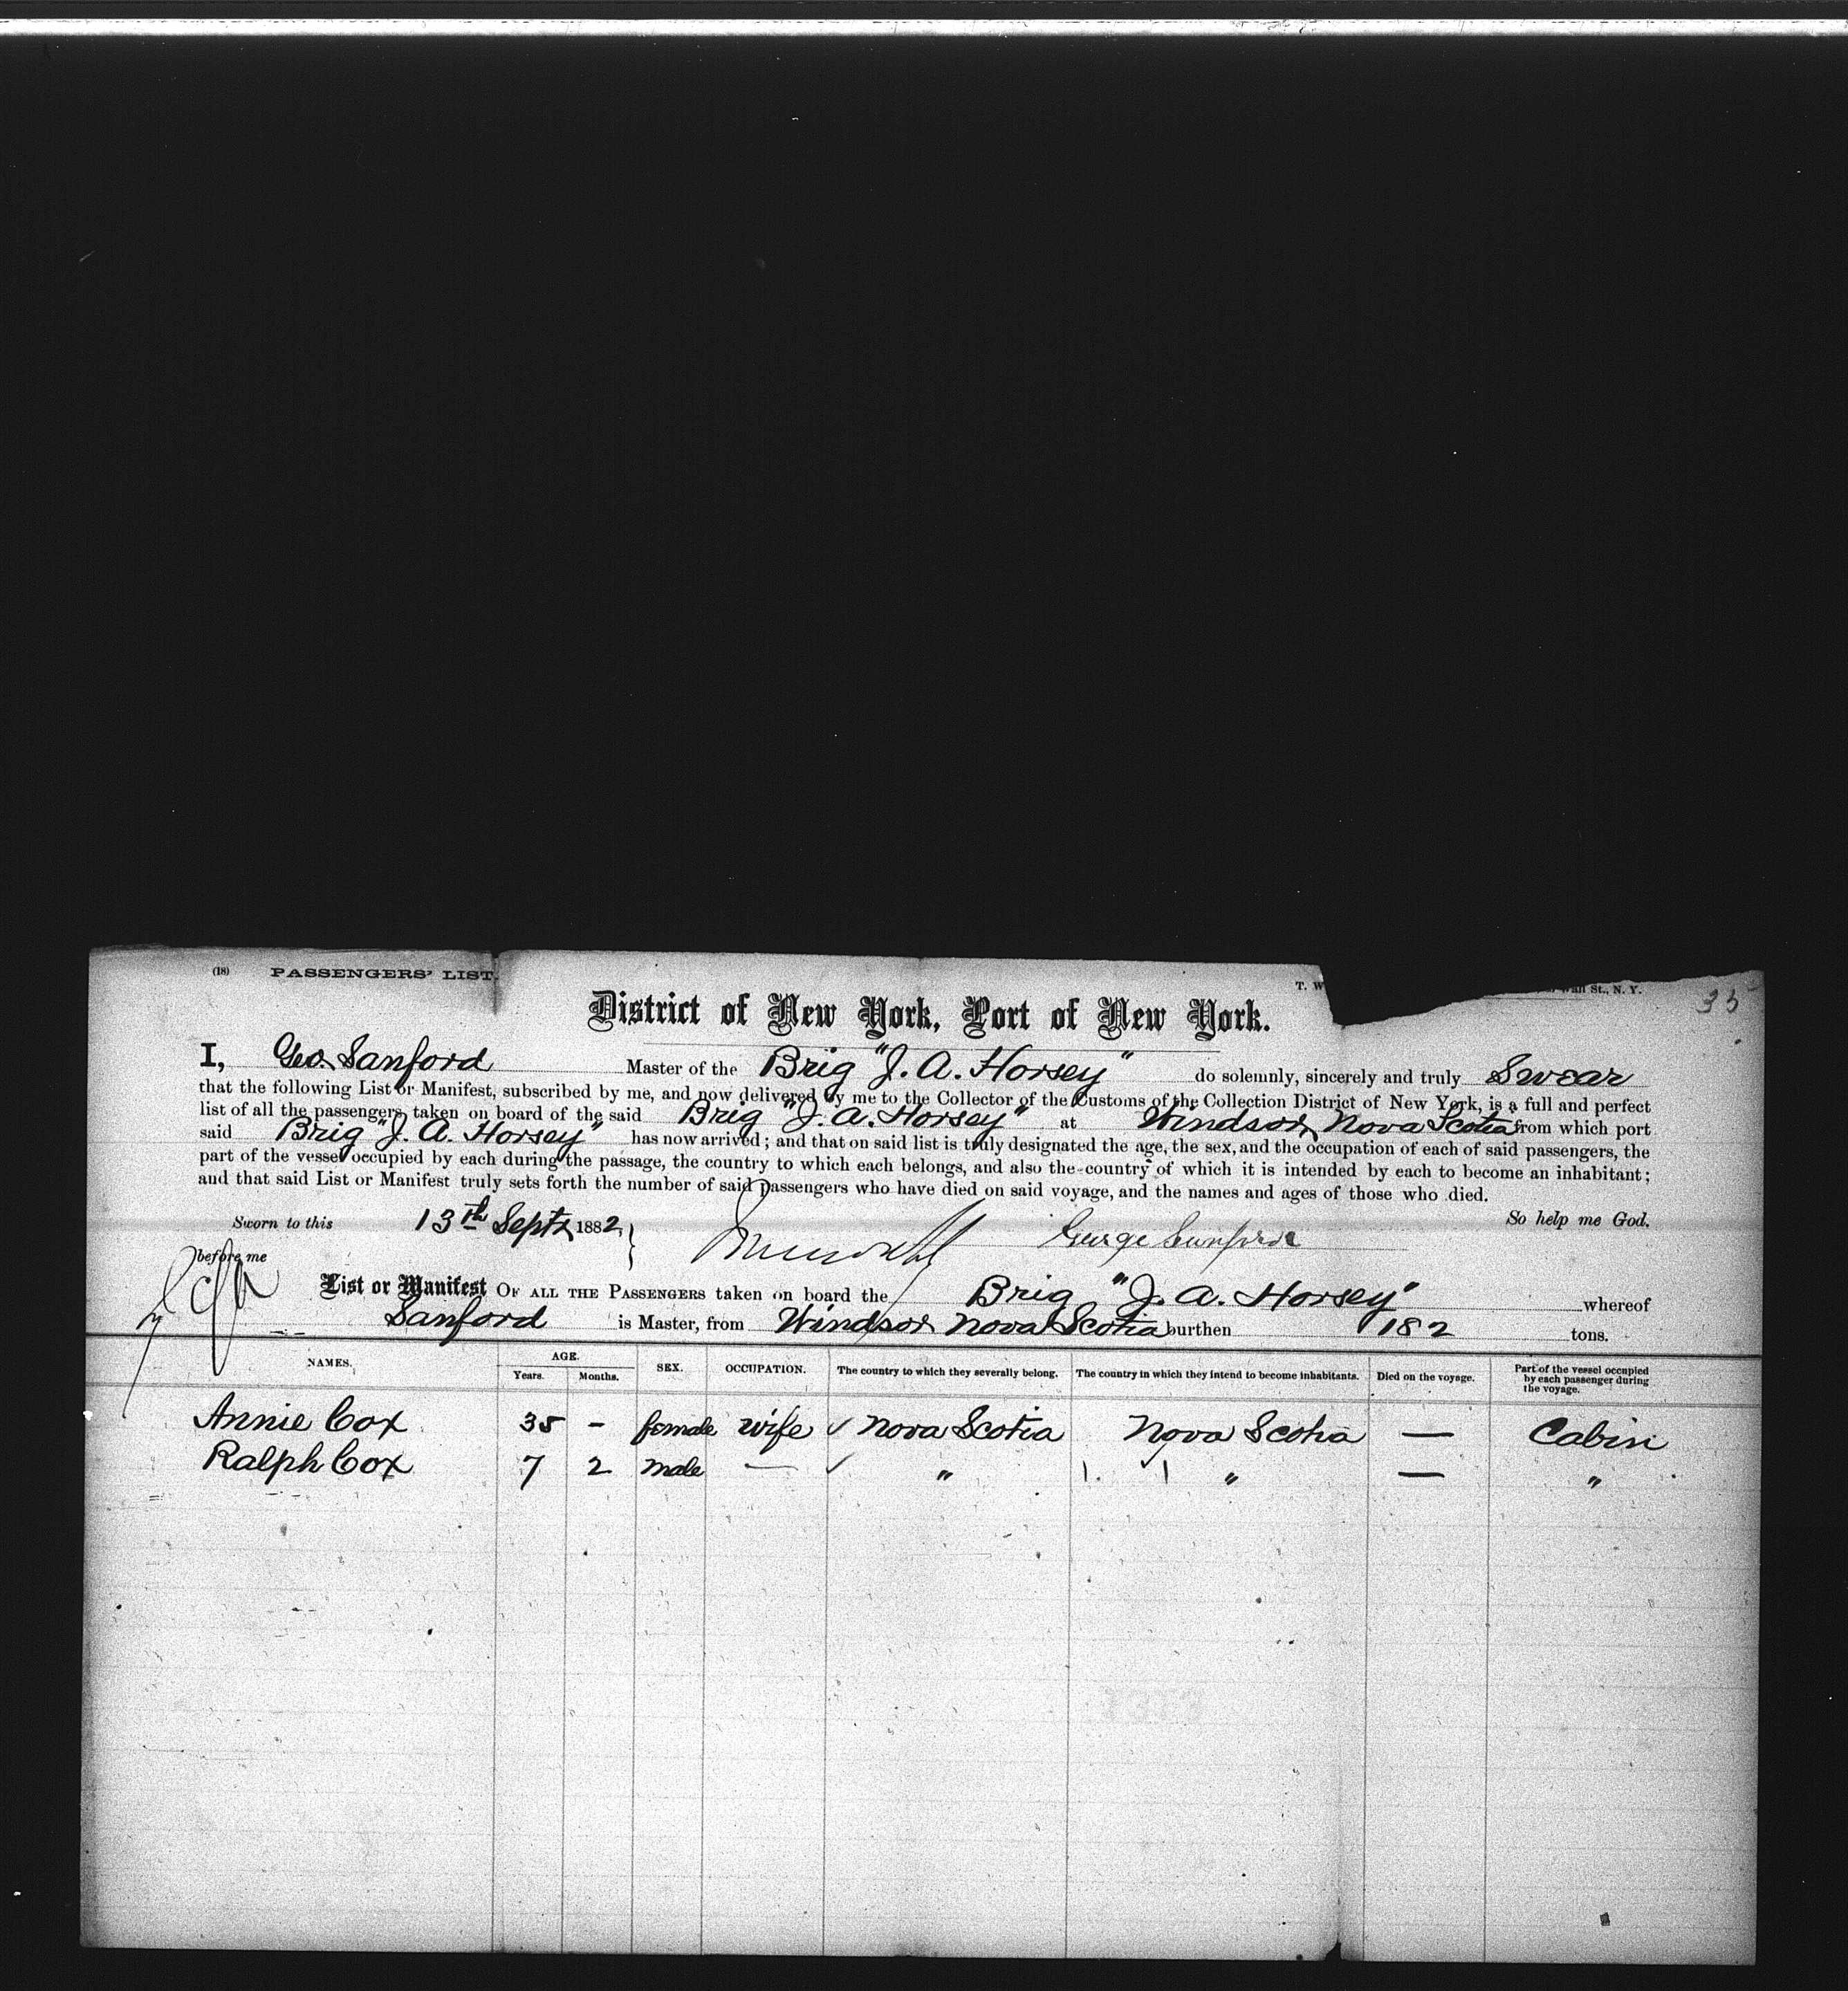 (18) PASSENGERS' LIST. T. W Wall St., N. Y. 35
District of New York, Port of New York.
I, Geo. Sanford Master of the Brig "J. A. Horsey" do solemnly, sincerely and truly Swear
that the following List or Manifest, subscribed by me, and now delivered by me to the Collector of the Customs of the Collection District of New York, is a full and perfect
list of all the passengers taken on board of the said Brig "J. A. Horsey" at Windsor, Nova Scotia from which port
said Brig "J. A. Horsey" has now arrived; and that on said list is truly designated the age, the sex, and the occupation of each of said passengers, the
part of the vessel occupied by each during the passage, the country to which each belongs, and also the country of which it is intended by each to become an inhabitant;
and that said List or Manifest truly sets forth the number of said passengers who have died on said voyage, and the names and ages of those who died.
Sworn to this 13th Septr 1882 So help me God.
before me George Sanford
List or Manifest OF ALL THE PASSENGERS taken on board the Brig "J. A. Horsey" whereof
Sanford is Master, from Windsor Nova Scotia burthen 182 tons.
NAMES. AGE. Years. Months. SEX. OCCUPATION. The country to which they severally belong. The country in which they intend to become inhabitants. Died on the voyage. Part of the vessel occupied by each passenger during the voyage.
Annie Cox 35 - female wife ✓ Nova Scotia Nova Scotia — Cabin
Ralph Cox 7 2 male — ✓ " " — "